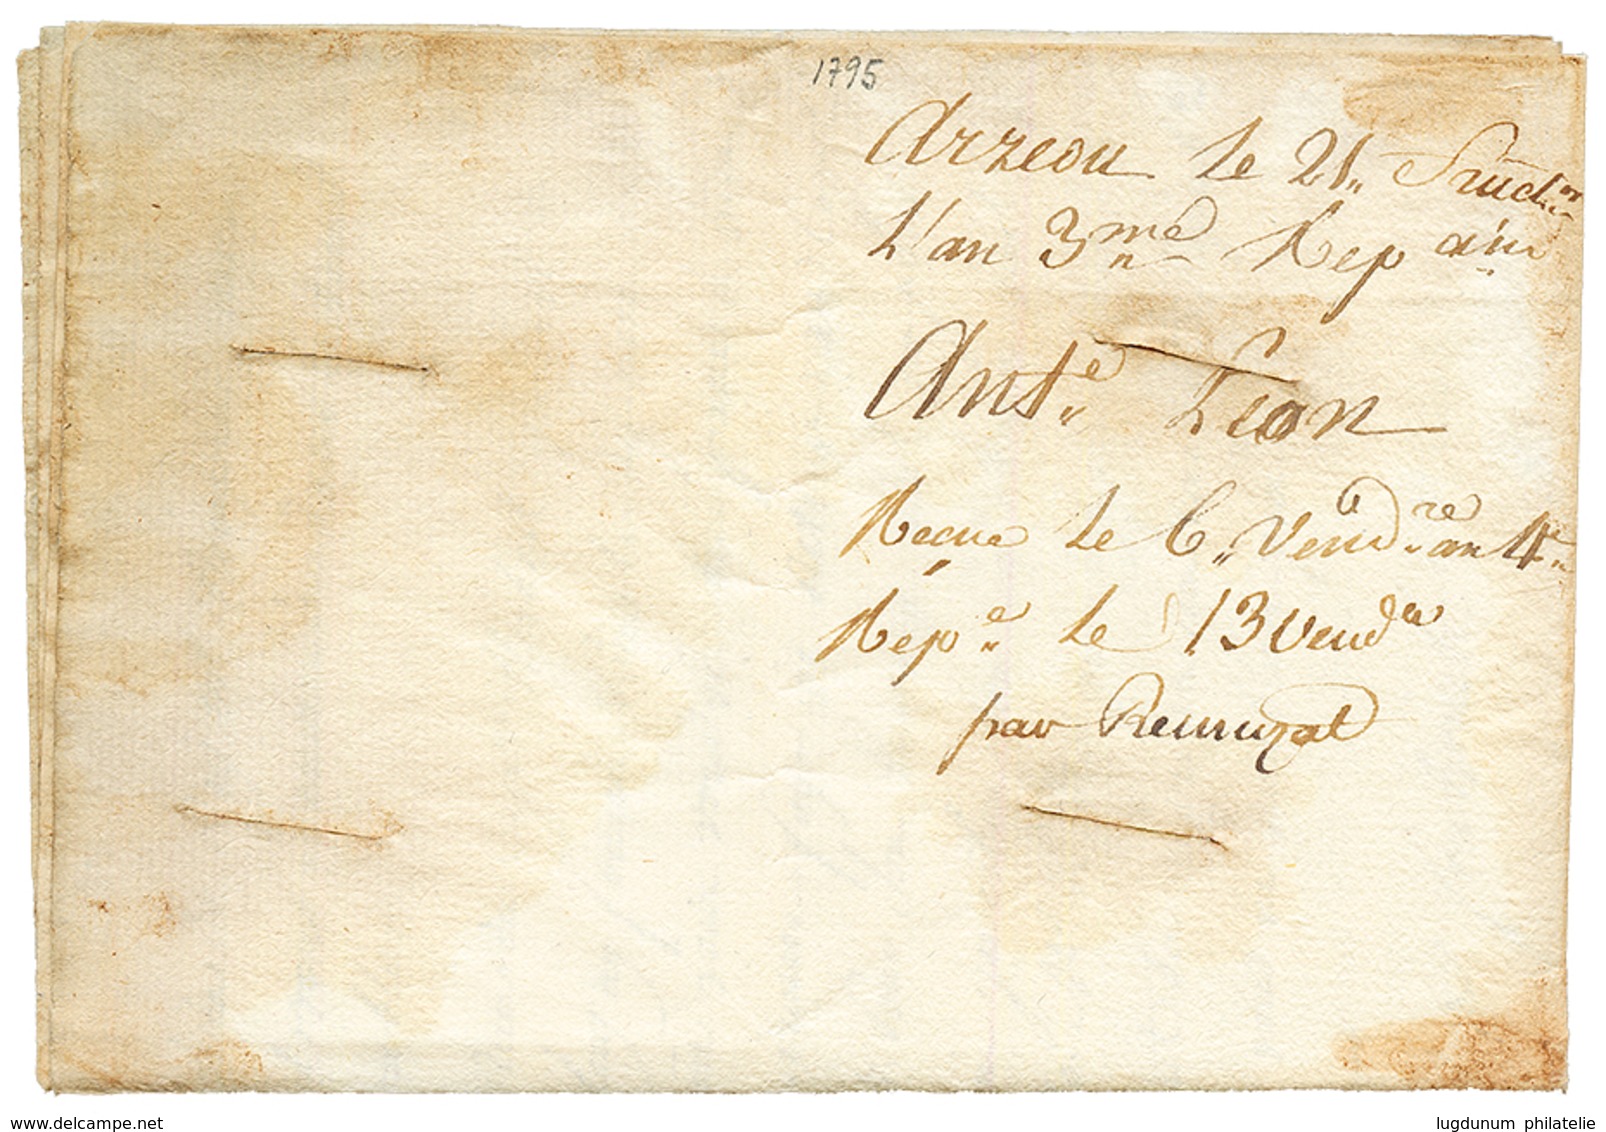 1795
Arzeou le 21 Fruct.or
L'an 3me Rep aine
Ante Léon
Reçue le 6 Vendre an 4e
Repe le 13 Vende
par Remuzat
delcampe.net
lugdunum philatelie